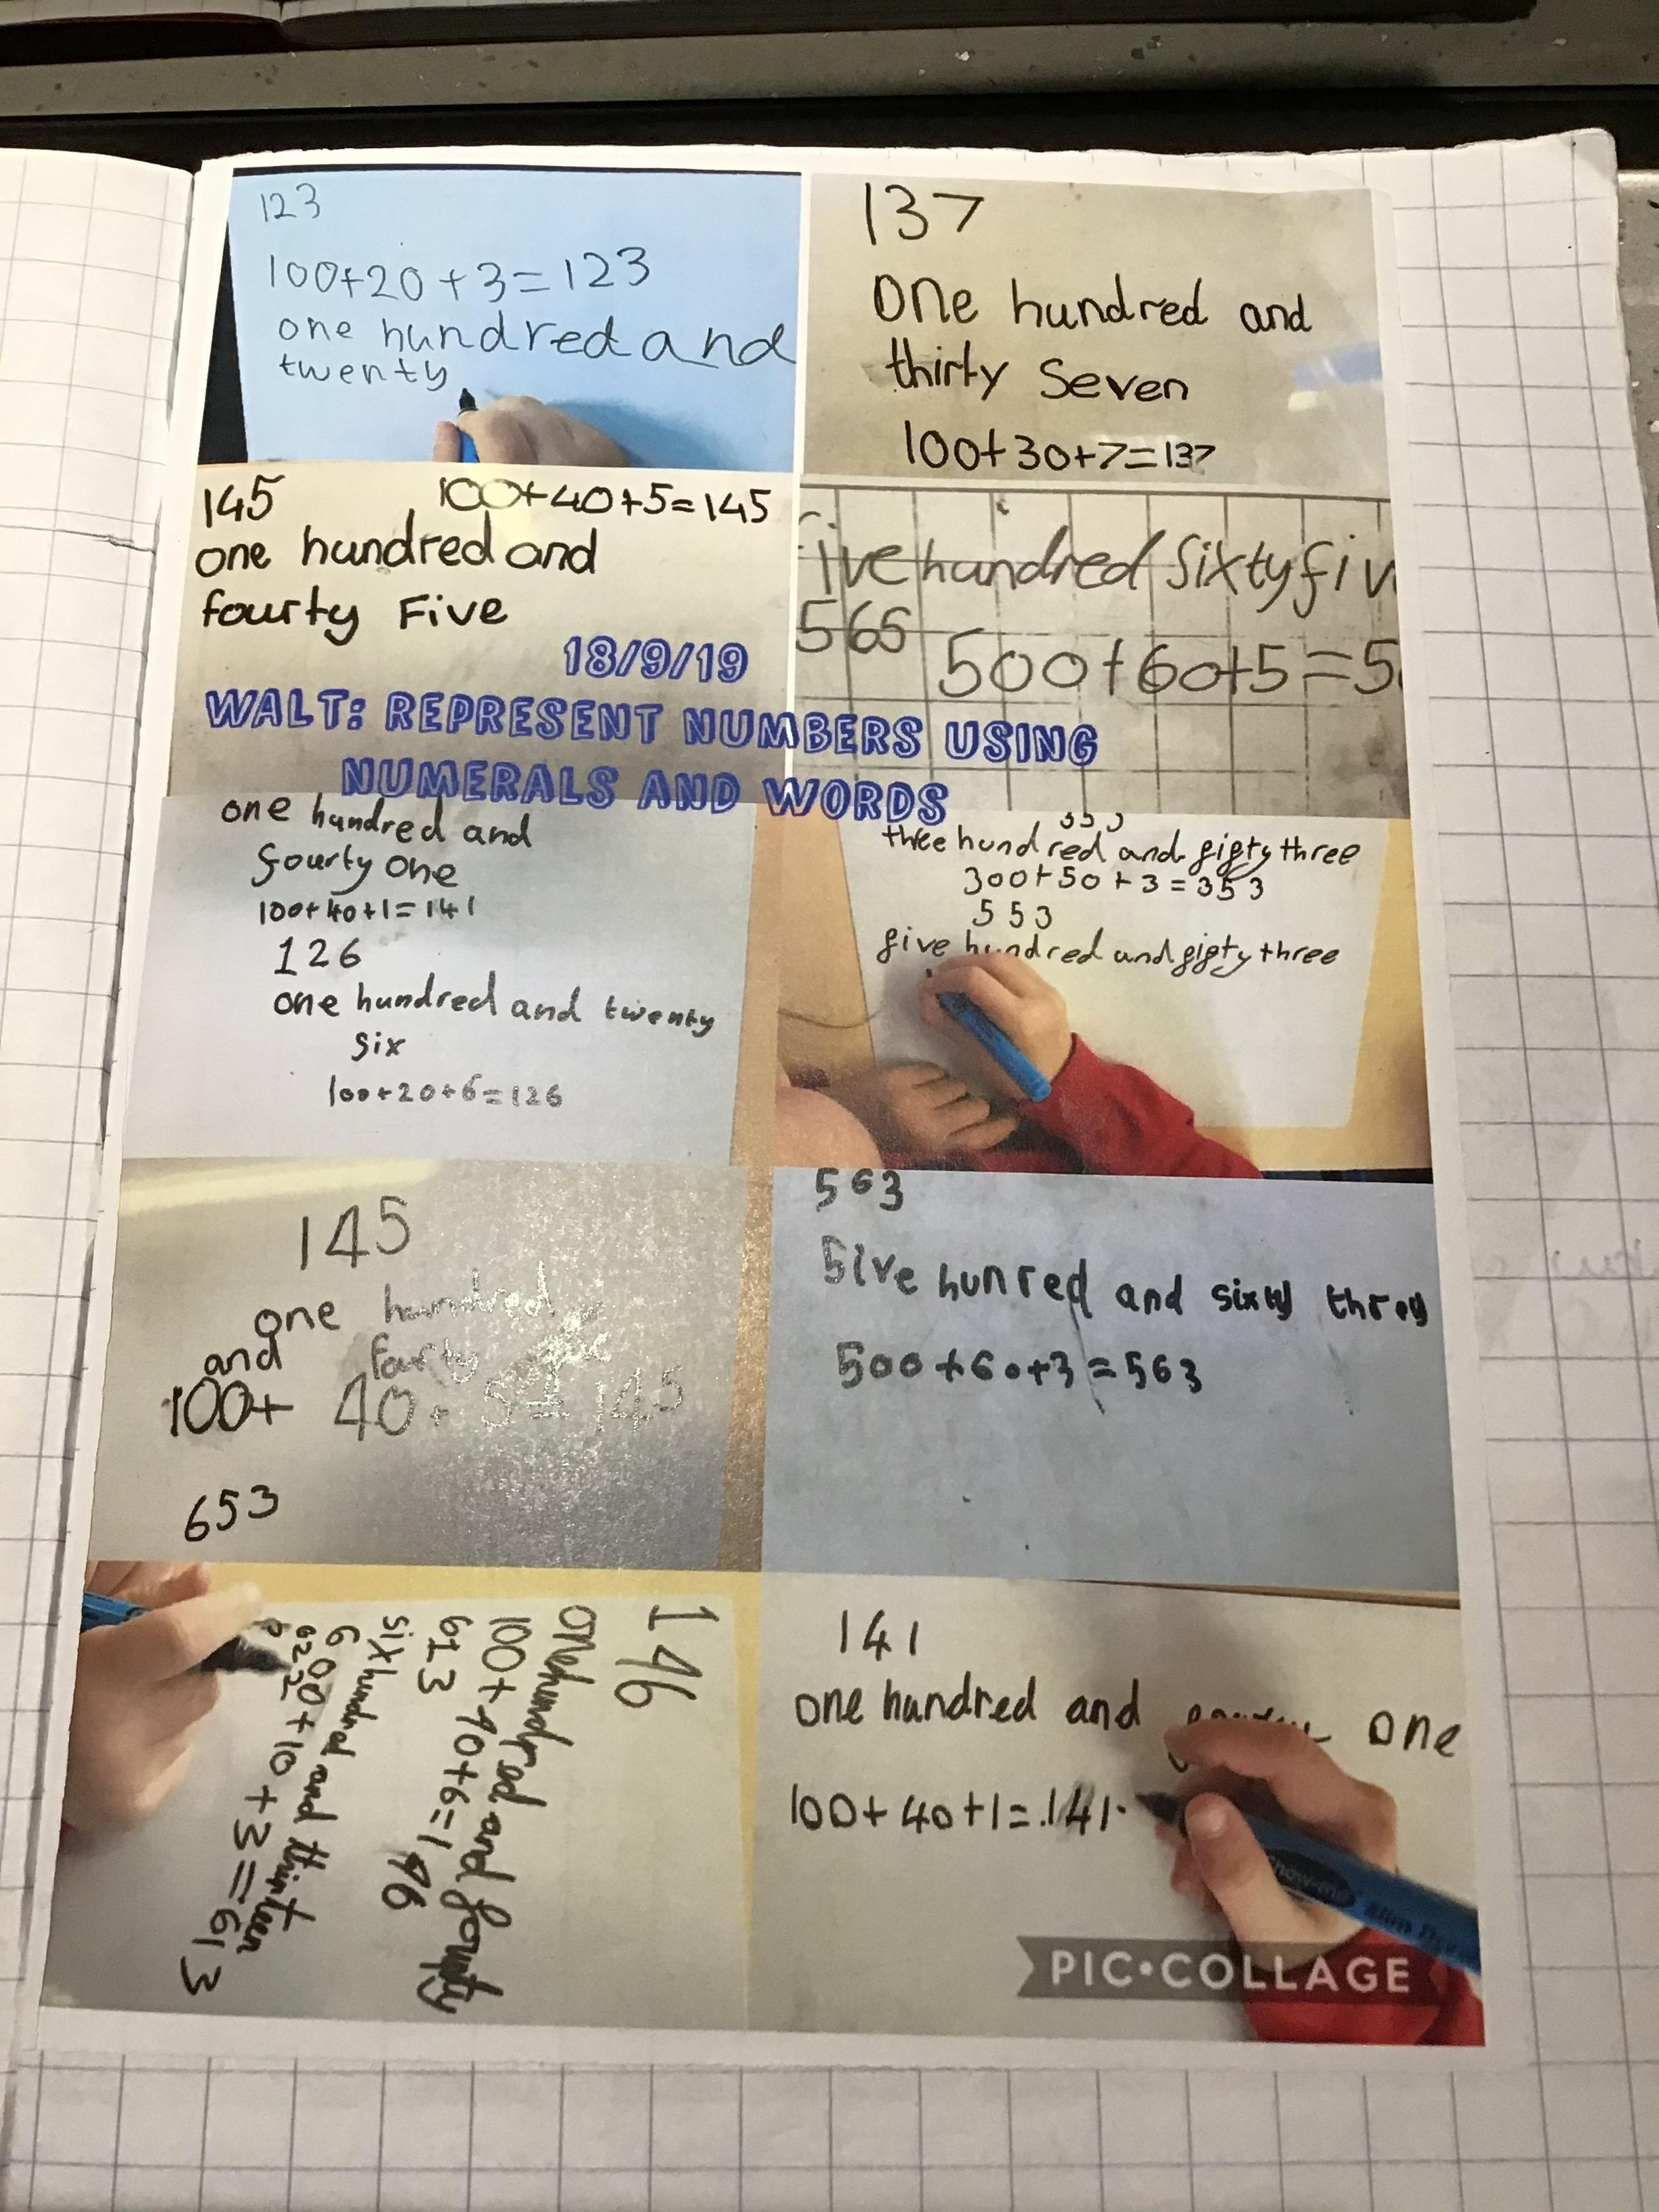 123
100+20+3=123
one hundred and
twenty
137
One hundred and
thirty Seven
100+30+7=137
145
100+40+5=145
one hundred and
fourty Five
five hundred sixty fiv
565
500+60+5=5
18/9/19
WALT: REPRESENT NUMBERS USING
NUMERALS AND WORDS
one hundred and
fourty one
100+40+1=141
126
one hundred and twenty
six
100+20+6=126
353
three hundred and fifty three
300+50+3=353
553
five hundred and fifty three
145
one hundred
and
100+40+5=145
653
563
five hunred and sixty
500+60+3=563
146
one hundred and
100+40+6=146
613
six hundred and
600+10+3=613
622
141
one hundred and one
100+40+1=141
PIC•COLLAGE